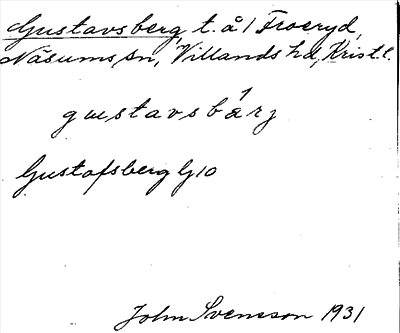 Gustavsberg, t. å 1 Froeryd,
Näsums sn, Villands hd, Krist.l.
gustavsbärj
Gustafsberg Gj 10
John Svensson 1931